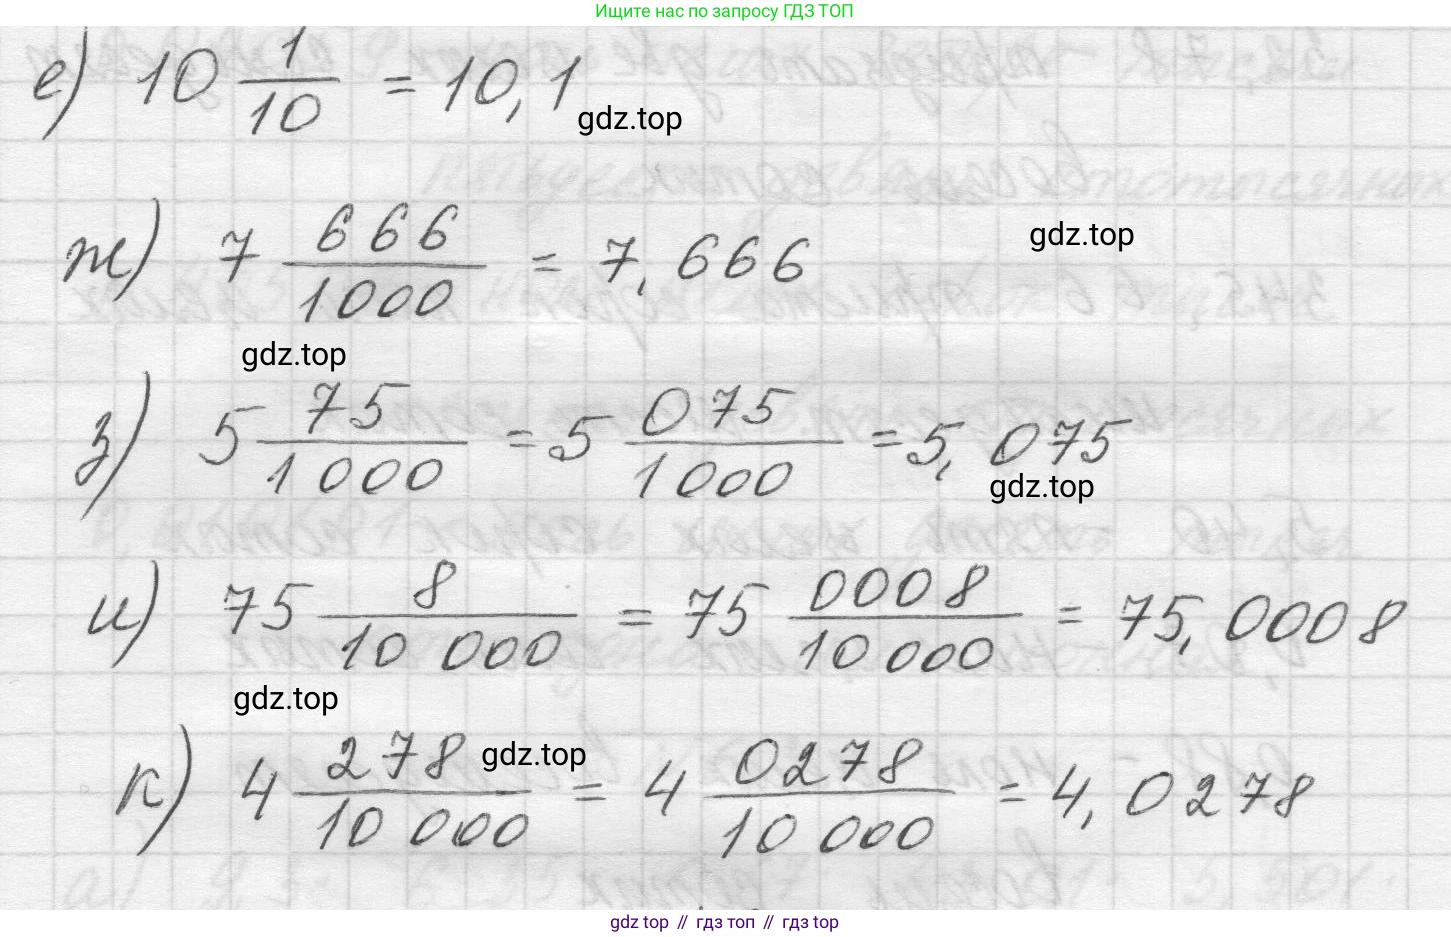 Ищите нас по запросу ГДЗ ТОП
е) 10 1/10 = 10,1
gdz.top
ж) 7 666/1000 = 7,666
gdz.top
gdz.top
з) 5 75/1000 = 5 075/1000 = 5,075
gdz.top
и) 75 8/10 000 = 75 0008/10 000 = 75,0008
gdz.top
к) 4 278/10 000 = 4 0278/10 000 = 4,0278
gdz.top
gdz top // гдз топ // гдз top